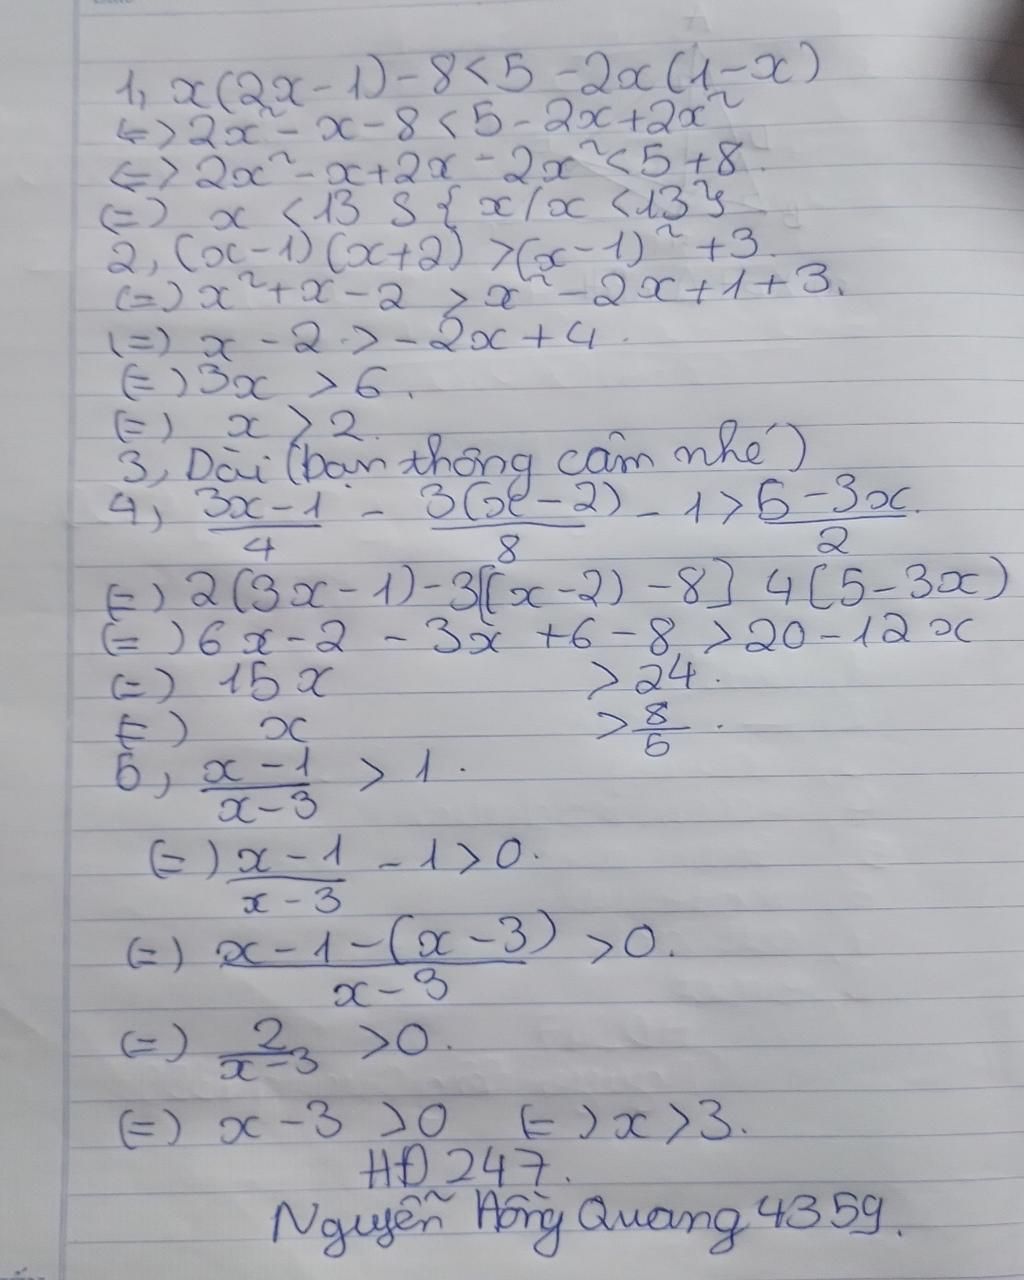 1, x(2x-1)-8<5-2x(1-x)
<=>2x²-x-8<5-2x+2x²
<=>2x²-x+2x-2x²<5+8
(=) x <13 S{x/x <13}
2, (x-1)(x+2)>(x-1)²+3.
(=)x²+x-2 > x²-2x+1+3.
(=) x-2>-2x+4.
(=)3x >6.
(=) x >2.
3, Dài (bạn thông cảm nhé)
4, (3x-1)/4 - 3(x-2)/8 - 1 > (5-3x)/2
(=) 2(3x-1)-3[(x-2)-8] 4(5-3x)
(=)6x-2-3x+6-8>20-12x
(=) 15x >24.
(=) x >8/5.
5, (x-1)/(x-3) > 1.
(=) (x-1)/(x-3) - 1>0.
(=) (x-1-(x-3))/(x-3) >0.
(=) 2/(x-3) >0.
(=) x-3 >0 (=)x>3.
HĐ 247.
Nguyễn Hồng Quang 4359.